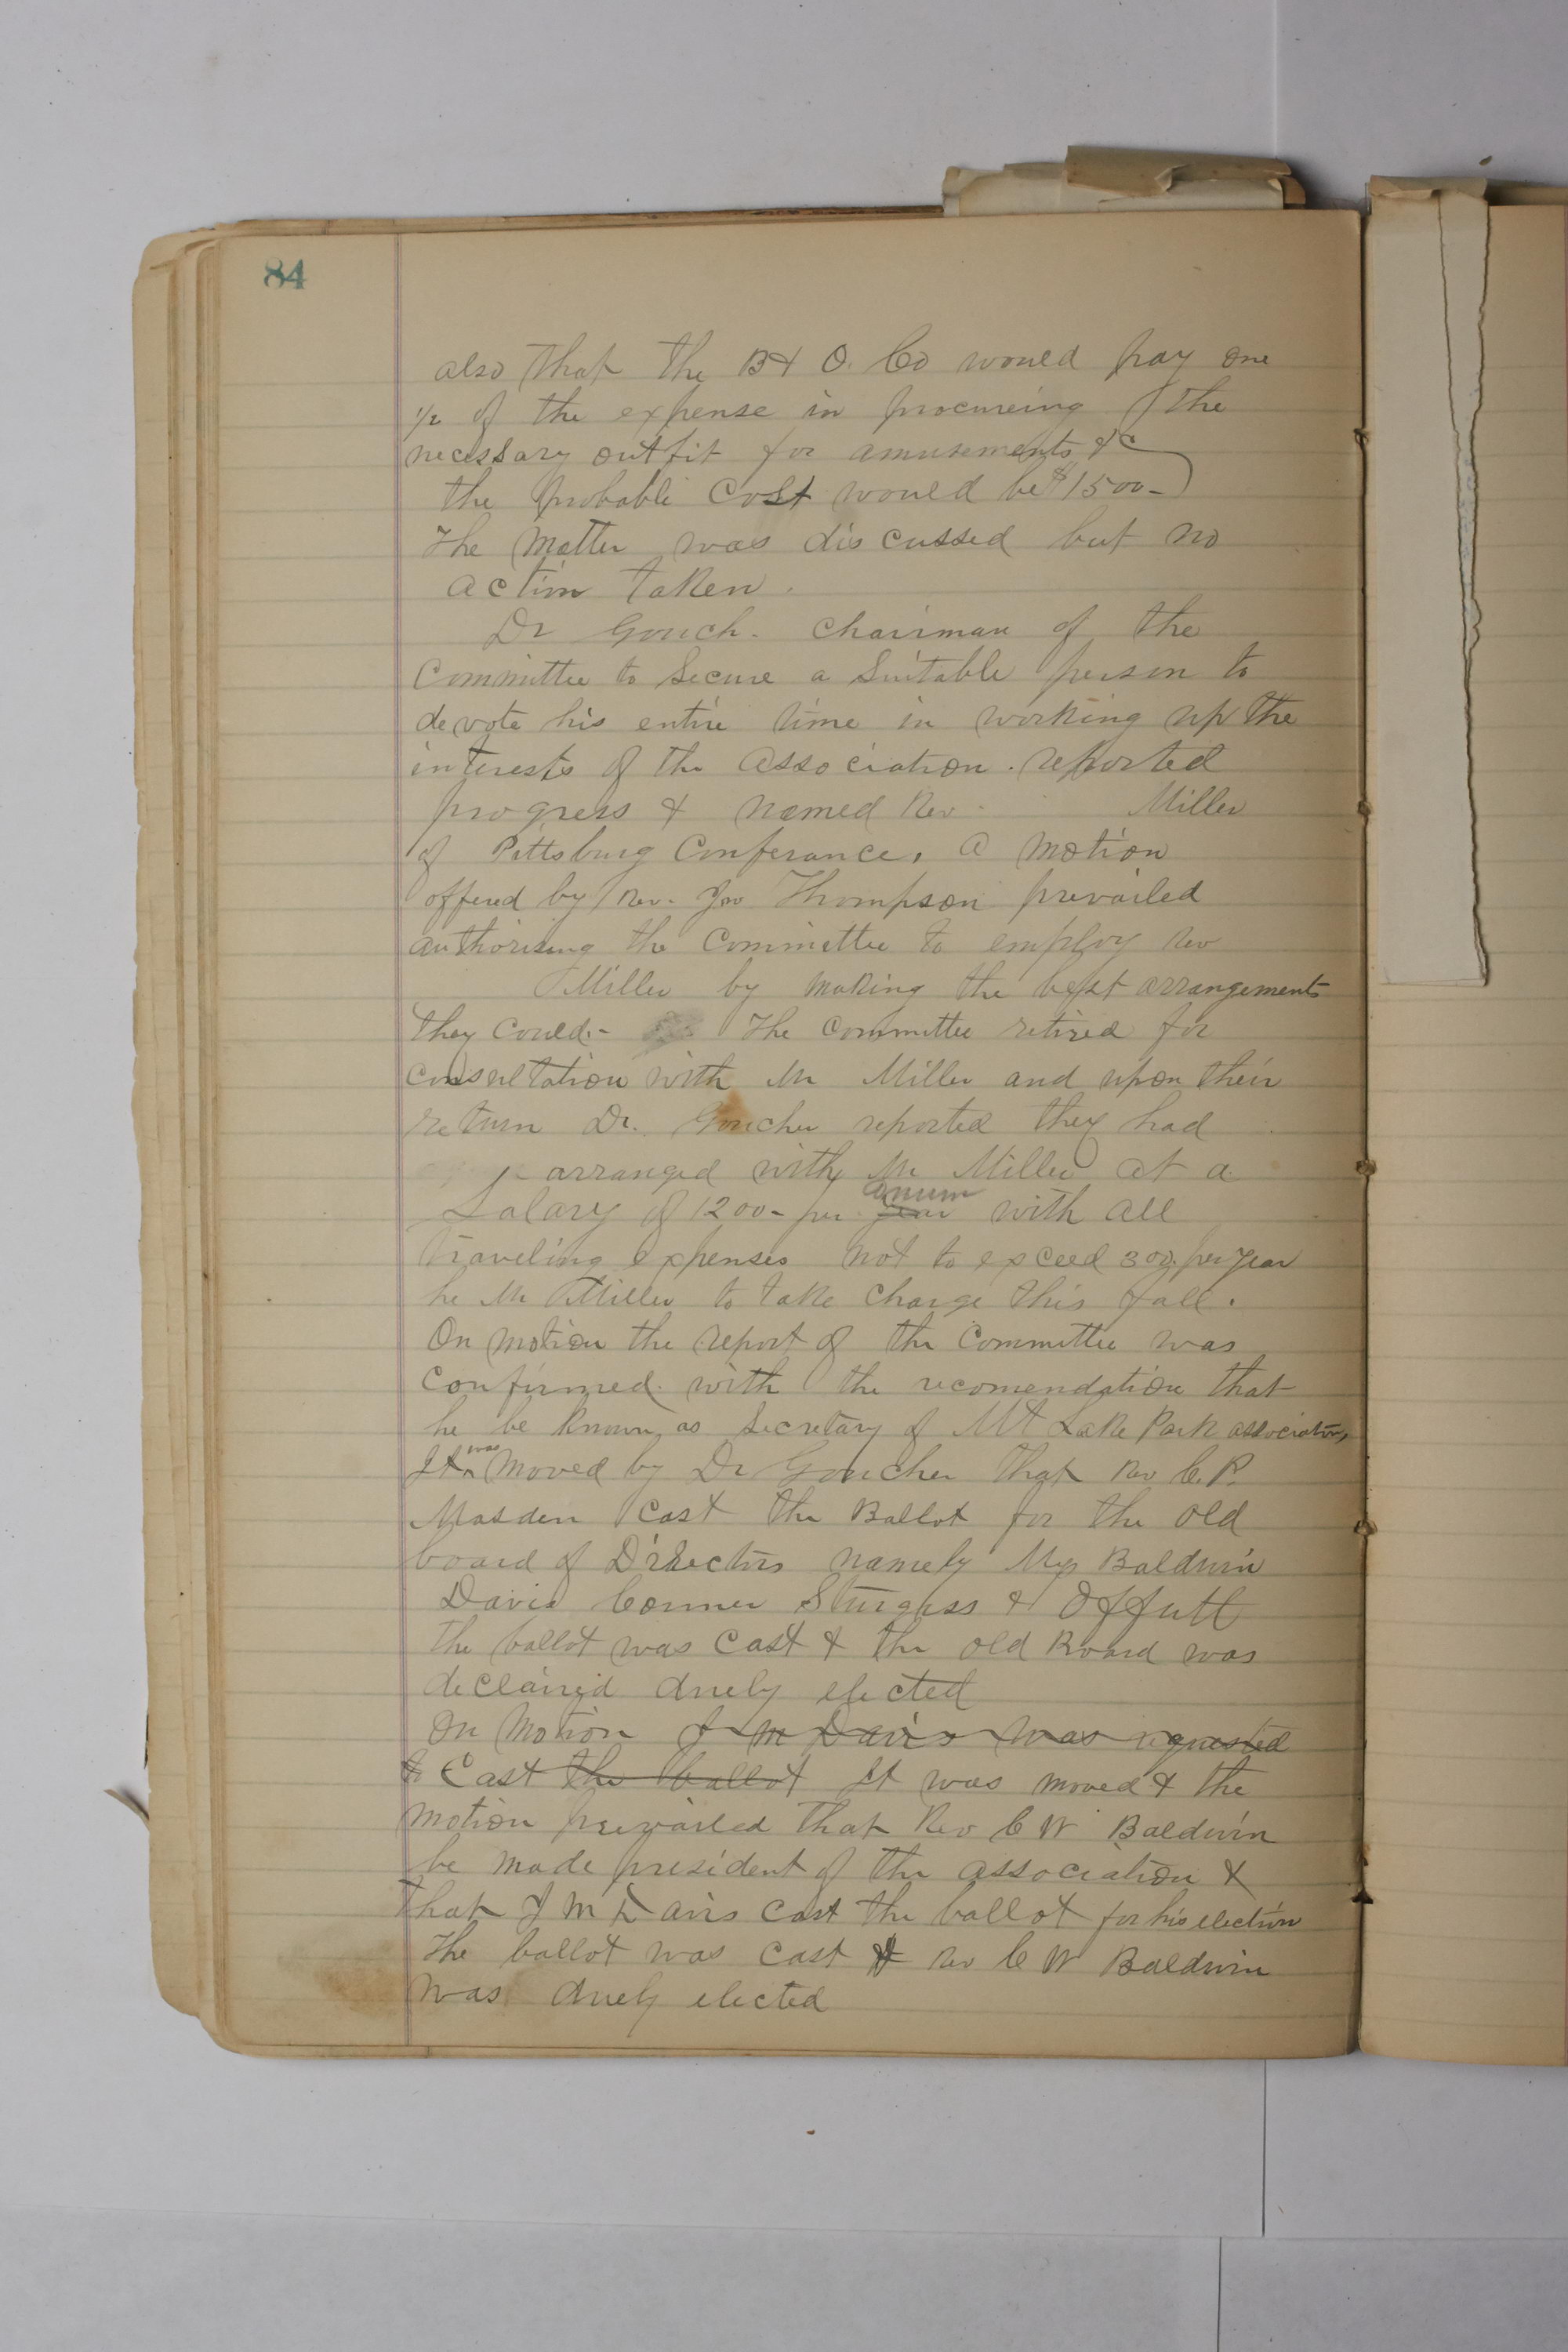 84
also that the B & O. Co would pay one
1/2 of the expense in procureing the
necessary outfit for amusements &c
the probable Cost would be $1500-
The Matter was discussed but no
action taken.
Dr Gouch. Chairman of the
Committee to Secure a Suitable person to
devote his entire time in working up the
interests of the Association. reported
progress & named Rev. Miller
of Pittsburg Conferance. A motion
offered by Rev. Jno Thompson prevailed
authorising the Committee to employ Rev
Miller by making the best arrangements
they Could.- The Committee retired for
consultation with Mr Miller and upon their
return Dr. Goucher reported they had
arranged with Mr Miller at a
Salary of 1200- per year anum with all
traveling expenses not to exceed 300. per year
he Mr Miller to take charge this fall.
On motion the report of the Committee was
Confirmed. with the recomendation that
he be known as Secretary of Mt Lake Park association,
It was moved by Dr Goucher that Rev C. P.
Masden Cast the Ballot for the old
board of Directors namely Mess Baldwin
Davis Conner Sturgiss & Offutt
the ballot was Cast & the old Board was
declaired duely elected
On Motion J M Davis was requested
to Cast the ballot It was moved & the
Motion prevailed that Rev C W Baldwin
be made president of the association &
that J M Davis Cast the ballot for his election
The ballot was Cast & Rev C W Baldwin
was duely elected